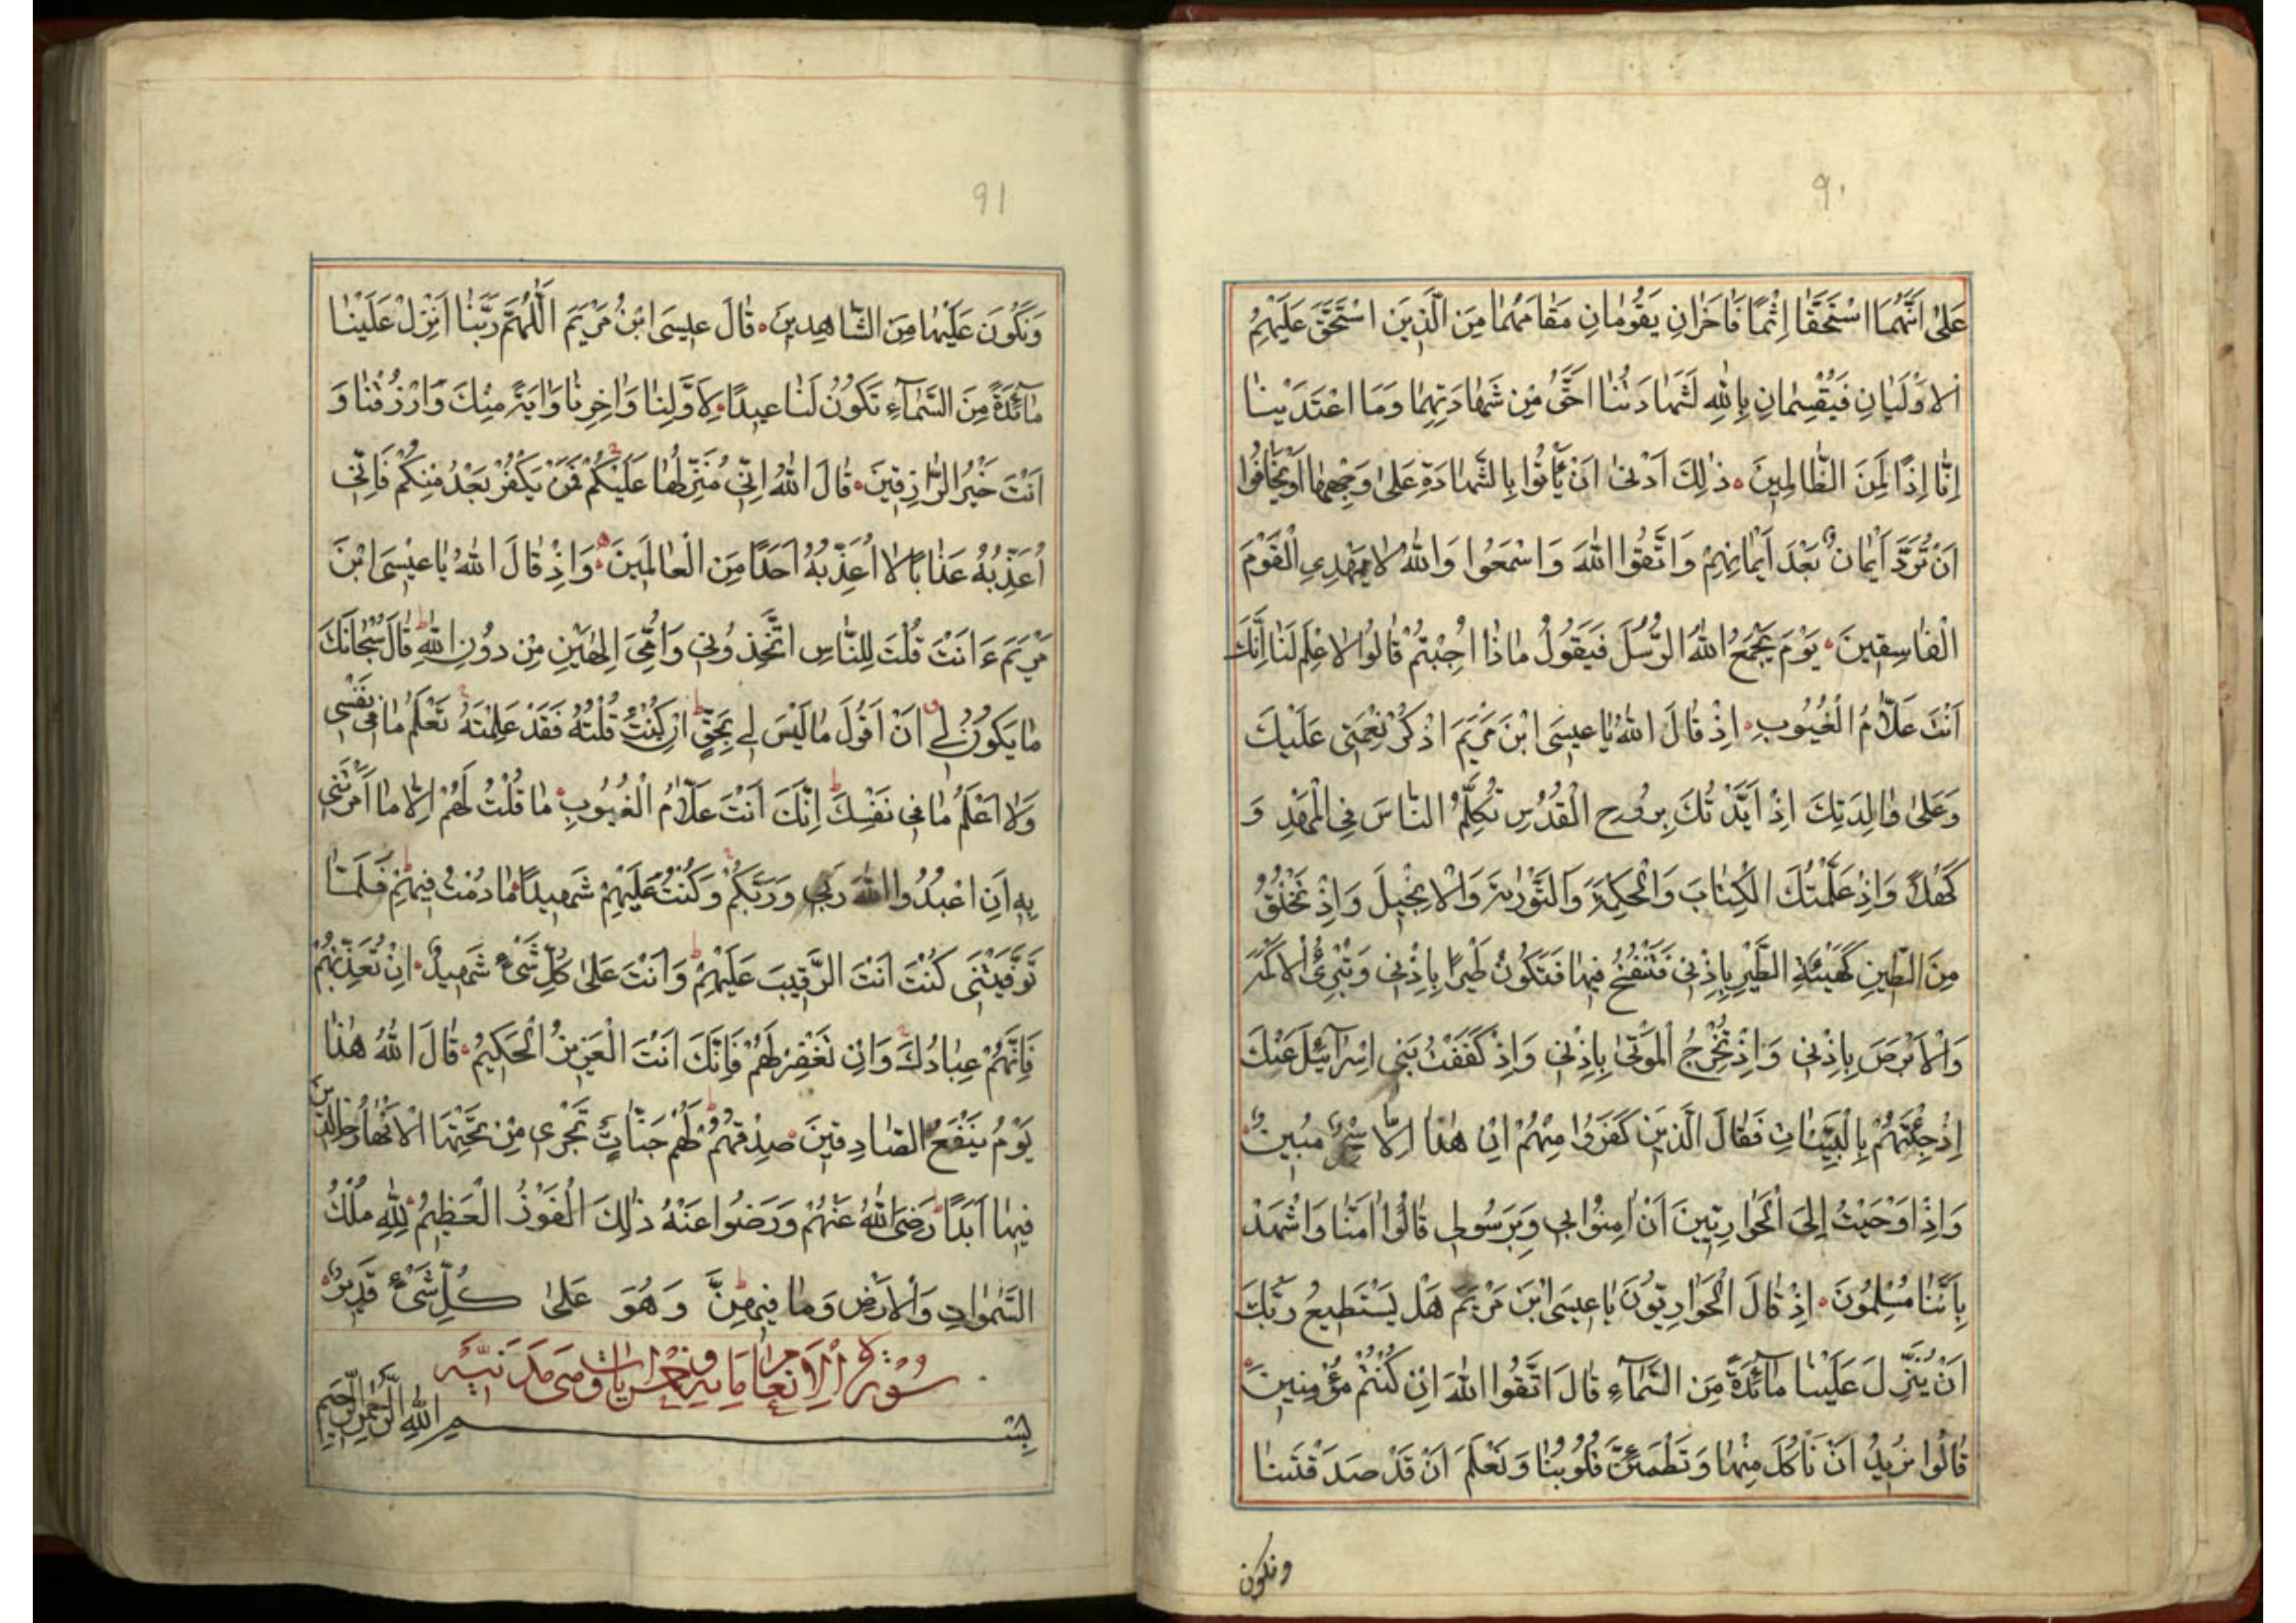 ٩٠
عَلىٰ اَنَّهُمَا اسْتَحَقّٰا اِثْمًا فَاٰخَرٰانِ يَقُومٰانِ مَقٰامَهُمٰا مِنَ الَّذِينَ اسْتَحَقَّ عَلَيْهِمُ
الْاَوْلَيٰانِ فَيُقْسِمٰانِ بِاللّٰهِ لَشَهٰادَتُنٰا اَحَقُّ مِنْ شَهٰادَتِهِمٰا وَمَا اعْتَدَيْنٰا
اِنّٰا اِذًا لَمِنَ الظّٰالِمِينَ ذٰلِكَ اَدْنىٰ اَنْ يَأْتُوا بِالشَّهٰادَةِ عَلىٰ وَجْهِهٰا اَوْ يَخٰافُوا
اَنْ تُرَدَّ اَيْمٰانٌ بَعْدَ اَيْمٰانِهِمْ وَاتَّقُوا اللّٰهَ وَاسْمَعُوا وَاللّٰهُ لٰا يَهْدِي الْقَوْمَ
الْفٰاسِقِينَ يَوْمَ يَجْمَعُ اللّٰهُ الرُّسُلَ فَيَقُولُ مٰاذٰا اُجِبْتُمْ قٰالُوا لٰا عِلْمَ لَنٰا اِنَّكَ
اَنْتَ عَلّٰامُ الْغُيُوبِ اِذْ قٰالَ اللّٰهُ يٰا عِيسَى ابْنَ مَرْيَمَ اذْكُرْ نِعْمَتِي عَلَيْكَ
وَعَلىٰ وٰالِدَتِكَ اِذْ اَيَّدْتُكَ بِرُوحِ الْقُدُسِ تُكَلِّمُ النّٰاسَ فِي الْمَهْدِ وَ
كَهْلًا وَاِذْ عَلَّمْتُكَ الْكِتٰابَ وَالْحِكْمَةَ وَالتَّوْرٰيةَ وَالْاِنْجِيلَ وَاِذْ تَخْلُقُ
مِنَ الطِّينِ كَهَيْئَةِ الطَّيْرِ بِاِذْنِي فَتَنْفُخُ فِيهٰا فَتَكُونُ طَيْرًا بِاِذْنِي وَتُبْرِئُ الْاَكْمَهَ
وَالْاَبْرَصَ بِاِذْنِي وَاِذْ تُخْرِجُ الْمَوْتىٰ بِاِذْنِي وَاِذْ كَفَفْتُ بَنِي اِسْرٰائِيلَ عَنْكَ
اِذْ جِئْتَهُمْ بِالْبَيِّنٰاتِ فَقٰالَ الَّذِينَ كَفَرُوا مِنْهُمْ اِنْ هٰذٰا اِلّٰا سِحْرٌ مُبِينٌ
وَاِذْ اَوْحَيْتُ اِلَى الْحَوٰارِيّينَ اَنْ اٰمِنُوا بِي وَبِرَسُولِي قٰالُوا اٰمَنّٰا وَاشْهَدْ
بِاَنَّنٰا مُسْلِمُونَ اِذْ قٰالَ الْحَوٰارِيّونَ يٰا عِيسَى ابْنَ مَرْيَمَ هَلْ يَسْتَطِيعُ رَبُّكَ
اَنْ يُنَزِّلَ عَلَيْنٰا مٰآئِدَةً مِنَ السَّمٰآءِ قٰالَ اتَّقُوا اللّٰهَ اِنْ كُنْتُمْ مُؤْمِنِينَ
قٰالُوا نُرِيدُ اَنْ نَأْكُلَ مِنْهٰا وَتَطْمَئِنَّ قُلُوبُنٰا وَنَعْلَمَ اَنْ قَدْ صَدَقْتَنٰا
ونكون
٩١
وَنَكُونَ عَلَيْهٰا مِنَ الشّٰاهِدِينَ قٰالَ عِيسَى ابْنُ مَرْيَمَ اللّٰهُمَّ رَبَّنٰا اَنْزِلْ عَلَيْنٰا
مٰآئِدَةً مِنَ السَّمٰآءِ تَكُونُ لَنٰا عِيدًا لِاَوَّلِنٰا وَاٰخِرِنٰا وَاٰيَةً مِنْكَ وَارْزُقْنٰا وَ
اَنْتَ خَيْرُ الرّٰازِقِينَ قٰالَ اللّٰهُ اِنِّي مُنَزِّلُهٰا عَلَيْكُمْ فَمَنْ يَكْفُرْ بَعْدُ مِنْكُمْ فَاِنِّي
اُعَذِّبُهُ عَذٰابًا لٰا اُعَذِّبُهُ اَحَدًا مِنَ الْعٰالَمِينَ وَاِذْ قٰالَ اللّٰهُ يٰا عِيسَى ابْنَ
مَرْيَمَ ءَاَنْتَ قُلْتَ لِلنّٰاسِ اتَّخِذُونِي وَاُمِّيَ اِلٰهَيْنِ مِنْ دُونِ اللّٰهِ قٰالَ سُبْحٰانَكَ
مٰا يَكُونُ لِي اَنْ اَقُولَ مٰا لَيْسَ لِي بِحَقٍّ اِنْ كُنْتُ قُلْتُهُ فَقَدْ عَلِمْتَهُ تَعْلَمُ مٰا فِي نَفْسِي
وَلٰا اَعْلَمُ مٰا فِي نَفْسِكَ اِنَّكَ اَنْتَ عَلّٰامُ الْغُيُوبِ مٰا قُلْتُ لَهُمْ اِلّٰا مٰا اَمَرْتَنِي
بِهِ اَنِ اعْبُدُوا اللّٰهَ رَبِّي وَرَبَّكُمْ وَكُنْتُ عَلَيْهِمْ شَهِيدًا مٰا دُمْتُ فِيهِمْ فَلَمّٰا
تَوَفَّيْتَنِي كُنْتَ اَنْتَ الرَّقِيبَ عَلَيْهِمْ وَاَنْتَ عَلىٰ كُلِّ شَيْءٍ شَهِيدٌ اِنْ تُعَذِّبْهُمْ
فَاِنَّهُمْ عِبٰادُكَ وَاِنْ تَغْفِرْ لَهُمْ فَاِنَّكَ اَنْتَ الْعَزِيزُ الْحَكِيمُ قٰالَ اللّٰهُ هٰذٰا
يَوْمُ يَنْفَعُ الصّٰادِقِينَ صِدْقُهُمْ لَهُمْ جَنّٰاتٌ تَجْرِي مِنْ تَحْتِهَا الْاَنْهٰارُ خٰالِدِينَ
فِيهٰا اَبَدًا رَضِيَ اللّٰهُ عَنْهُمْ وَرَضُوا عَنْهُ ذٰلِكَ الْفَوْزُ الْعَظِيمُ لِلّٰهِ مُلْكُ
السَّمٰوٰاتِ وَالْاَرْضِ وَمٰا فِيهِنَّ وَهُوَ عَلىٰ كُلِّ شَيْءٍ قَدِيرٌ
سُورَةُ الْاَنْعٰامِ مِاية وخمس اٰيات وهي مدنيّة
بِسْمِ اللّٰهِ الرَّحْمٰنِ الرَّحِيمِ